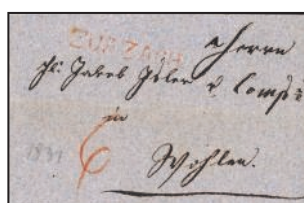 ZURZACH
Herrn
Hr. Jakob Isler & Comp:
in
1831
6
Wohlen.